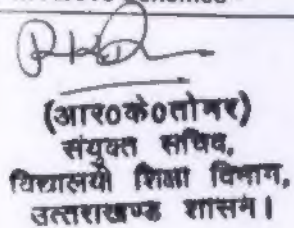 (आर०के०तोमर)
संयुक्त सचिव,
विद्यालयी शिक्षा विभाग,
उत्तराखण्ड शासन।